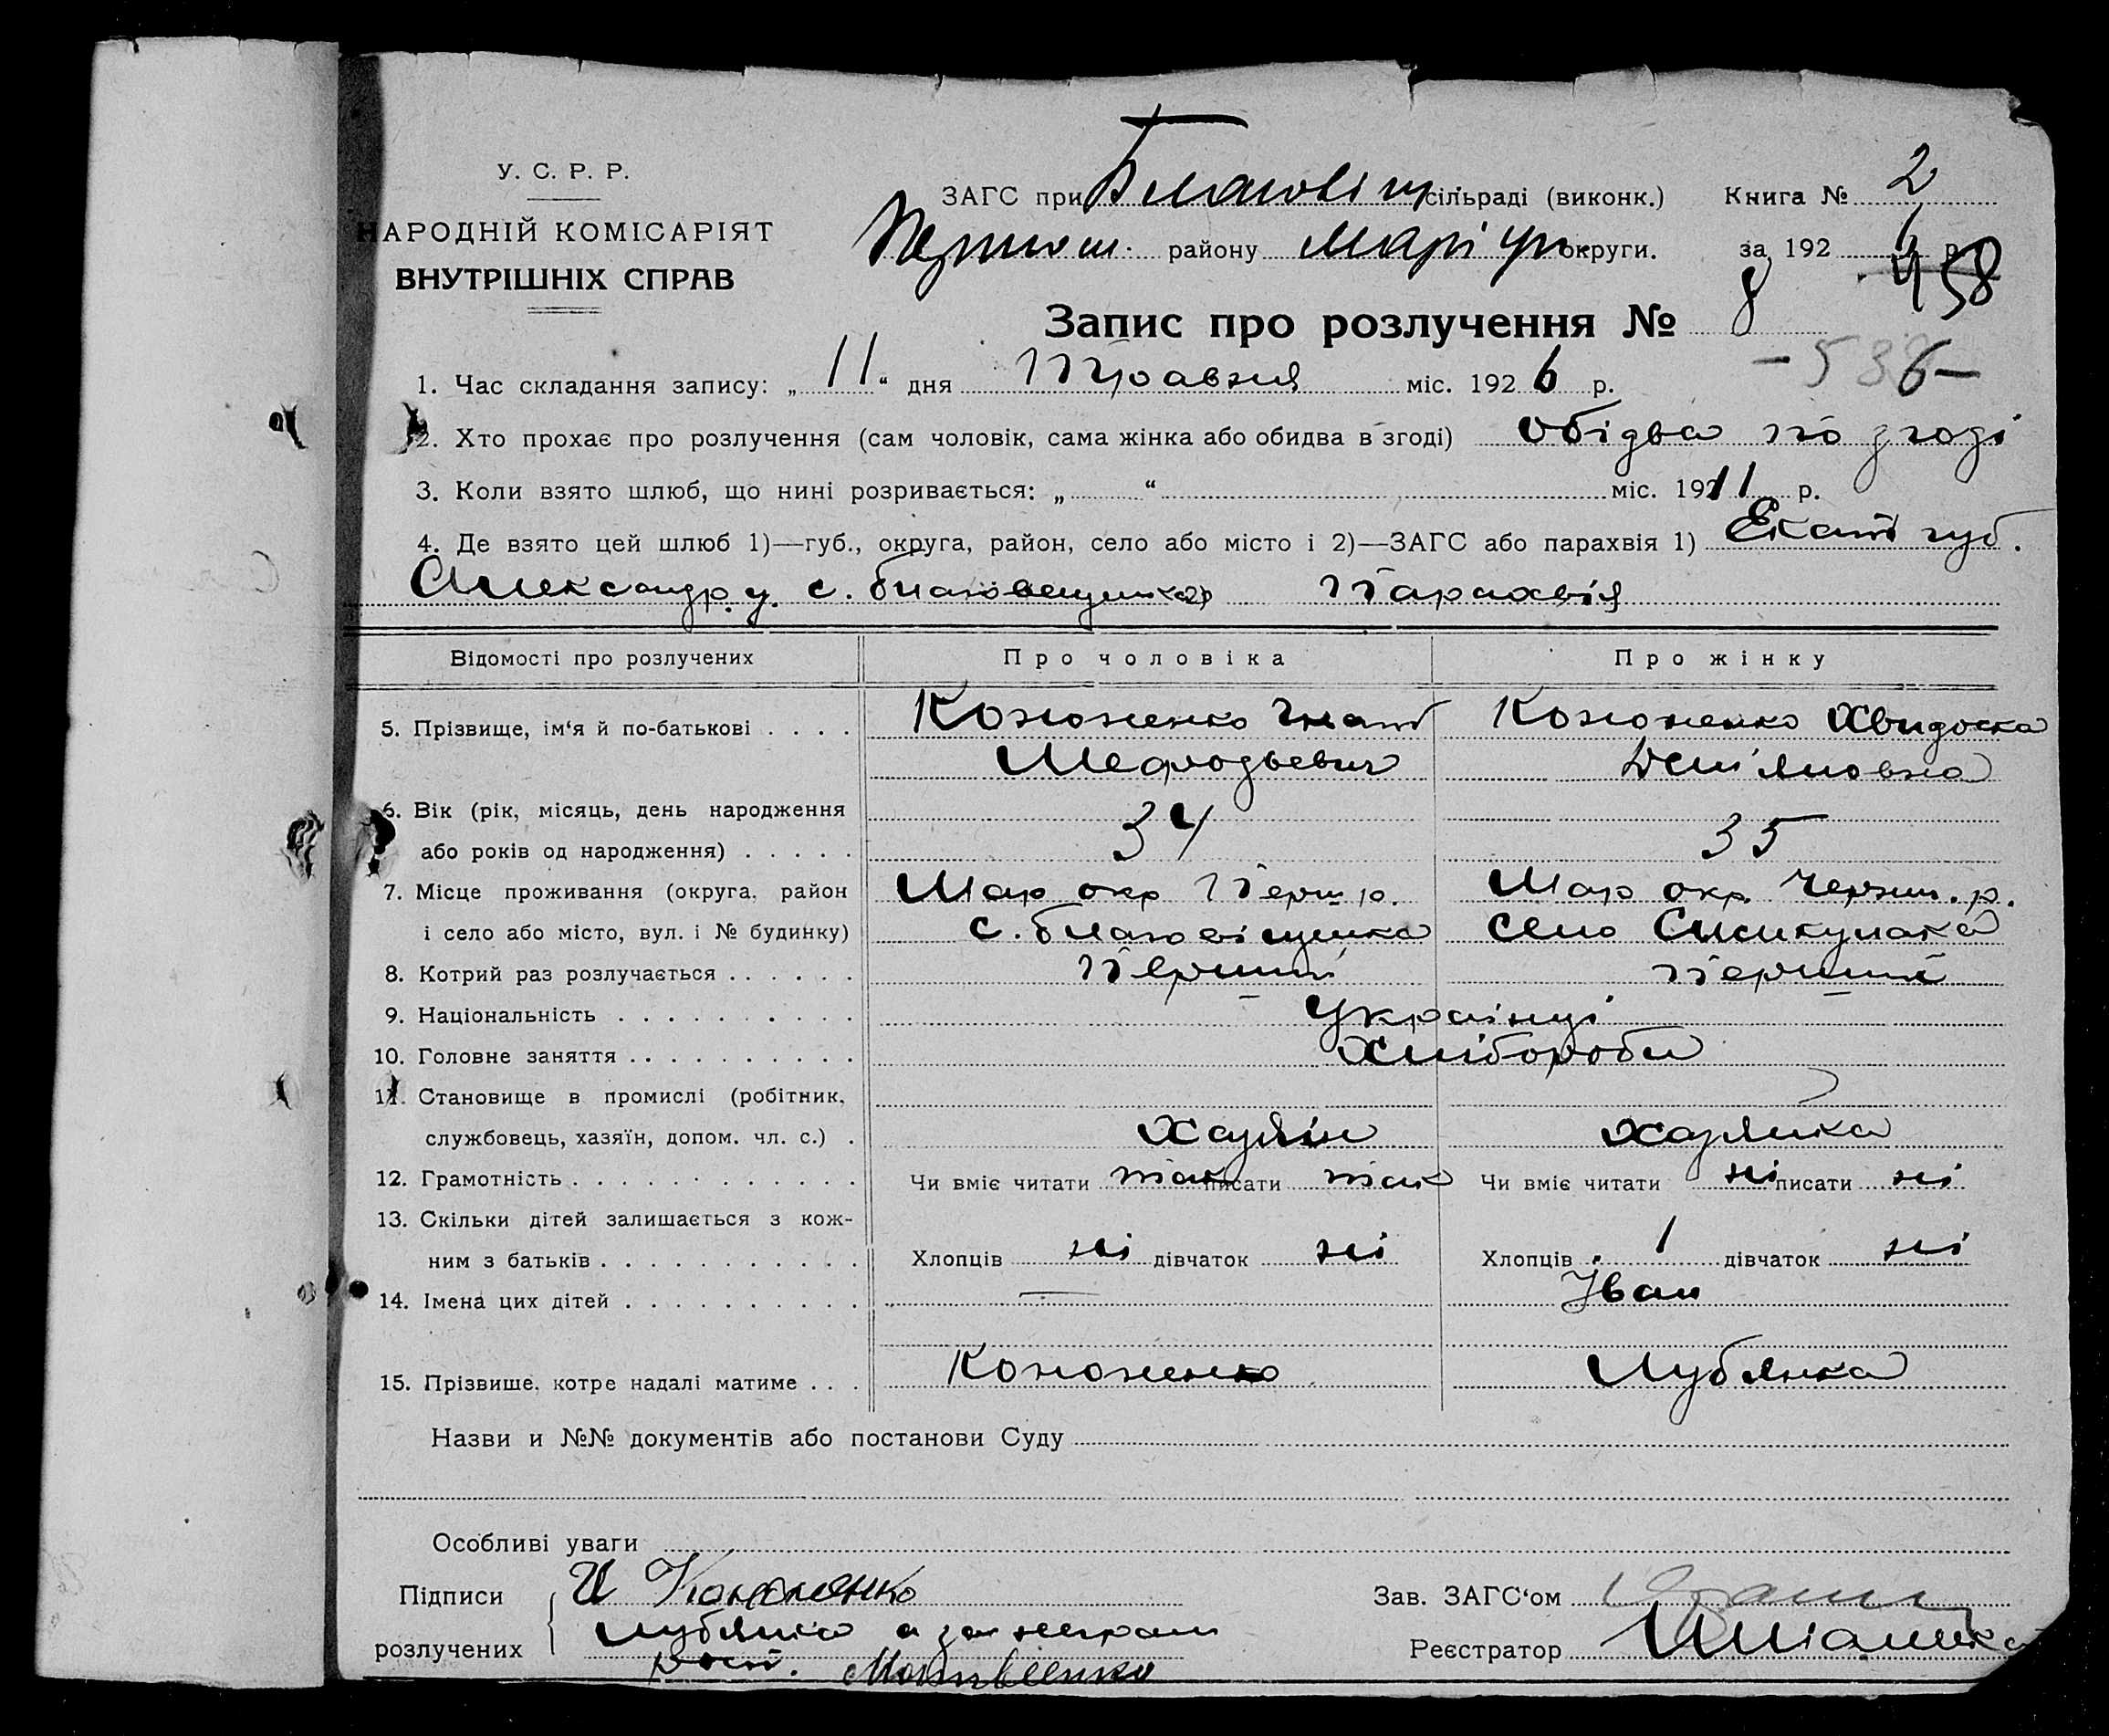 У. С. Р. Р.
НАРОДНІЙ КОМІСАРІЯТ
ВНУТРІШНІХ СПРАВ
ЗАГС при Благовіщ сільраді (виконк.) Книга № 2
району Маріуп округи. за 192 6 р.
458
Запис про розлучення № 8
– 536 –
1. Час складання запису: „ 11 “ дня Травня міс. 192 6 р.
2. Хто прохає про розлучення (сам чоловік, сама жінка або обидва в згоді) обідва по згоді
3. Коли взято шлюб, що нині розривається: „ “ міс. 1911 р.
4. Де взято цей шлюб 1)—губ., округа, район, село або місто і 2)—ЗАГС або парахвія 1) Екат губ.
Александр. у. с. благовещенка Парахвія
Відомості про розлучених Про чоловіка Про жінку
5. Прізвище, ім‘я й по-батькові . . . . Кононенко Гнат Кононенко Хвидоска
Мефодьевич Дем'яновна
6. Вік (рік, місяць, день народження
або років од народження) . . . . . 34 35
7. Місце проживання (округа, район Мар окр Перш р. Мар окр. р.
і село або місто, вул. і № будинку) с. благовіщенка село
8. Котрий раз розлучається . . . . . . Перший перший
9. Національність . . . . . . . . . . Українці
10. Головне заняття . . . . . . . . . . Хлібороби
11. Становище в промислі (робітник,
службовець, хазяїн, допом. чл. с.) . Хазяїн хазяйка
12. Грамотність . . . . . . . . . . . . Чи вміє читати так писати так Чи вміє читати ні писати ні
13. Скільки дітей залишається з кож-
ним з батьків . . . . . . . . . . . Хлопців ні дівчаток ні Хлопців 1 дівчаток ні
14. Імена цих дітей . . . . . . . . . . — Іван
15. Прізвише, котре надалі матиме . . . Кононенко Лубянка
Назви и №№ документів або постанови Суду
Особливі уваги
Підписи И Кононенко Зав. ЗАГС‘ом
розлучених лубянка а за неграм Реєстратор
рост. Матвіенко